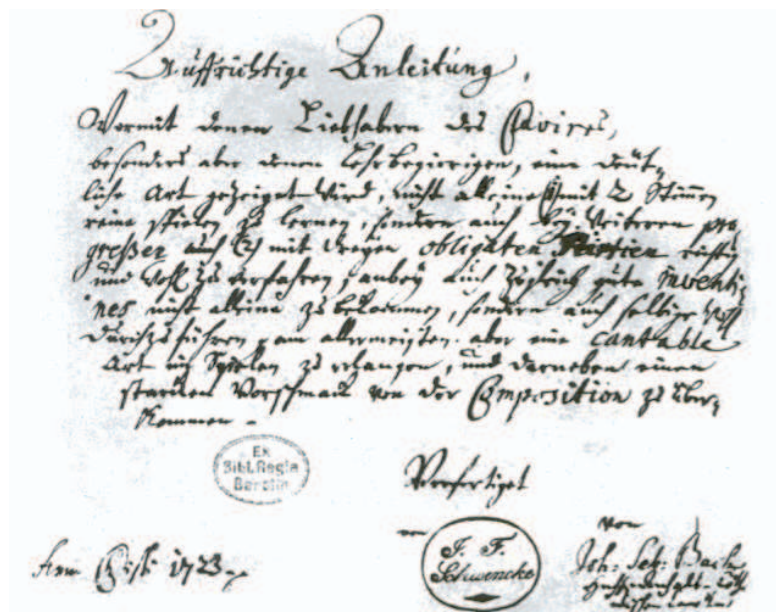 Auffrichtige Anleitung,
Wormit denen Liebhabern des Clavires,
besonders aber denen Lehrbegierigen, eine deüt-
liche Art gezeiget wird, nicht alleine (1) mit 2 Stim̄en
reine spielen zu lernen, sondern auch bey weiteren pro-
greßen auch (2) mit dreyen obligaten Partien richtig
und wohl zu verfahren, anbey auch zugleich gute inventi-
ones nicht alleine zu bekommen, sondern auch selbige wohl
durchzuführen, am allermeisten aber eine cantable
Art im Spielen zu erlangen, und darneben einen
starcken Vorschmack von der Composition zu über-
kommen.
Ex
Bibl. Regia
Berolin
Verfertiget
von
J. F.
Schwencke
Joh: Seb: Bach
Anno Christi 1723.